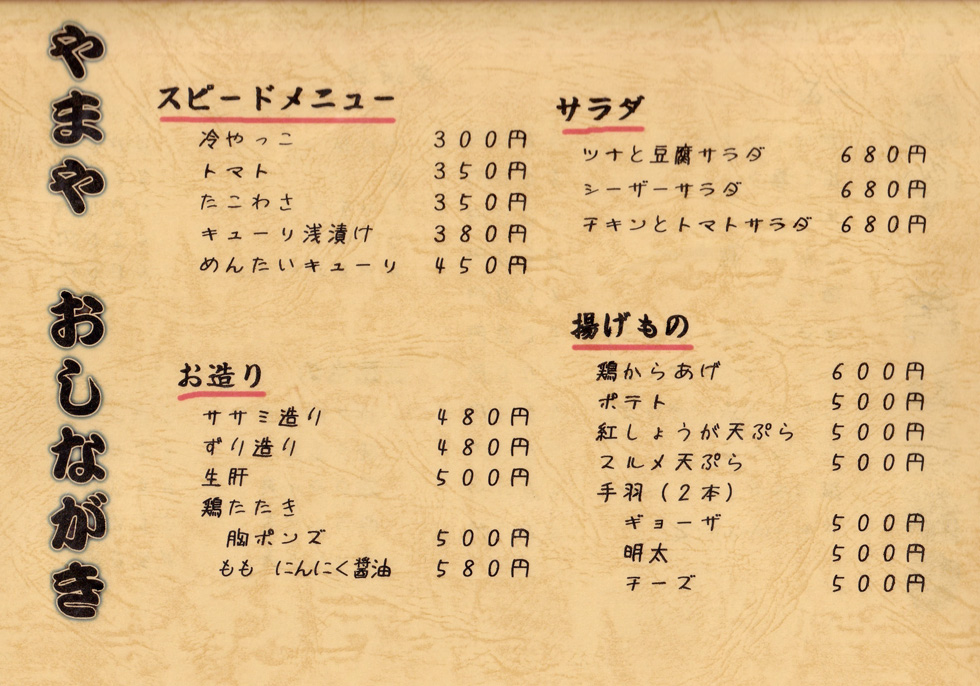 やまや　おしながき
スピードメニュー
冷やっこ　３００円
トマト　３５０円
たこわさ　３５０円
キューリ浅漬け　３８０円
めんたいキューリ　４５０円
お造り
ササミ造り　４８０円
ずり造り　４８０円
生肝　５００円
鶏たたき
胸ポンズ　５００円
もも　にんにく醤油　５８０円
サラダ
ツナと豆腐サラダ　６８０円
シーザーサラダ　６８０円
チキンとトマトサラダ　６８０円
揚げもの
鶏からあげ　６００円
ポテト　５００円
紅しょうが天ぷら　５００円
スルメ天ぷら　５００円
手羽（２本）
ギョーザ　５００円
明太　５００円
チーズ　５００円